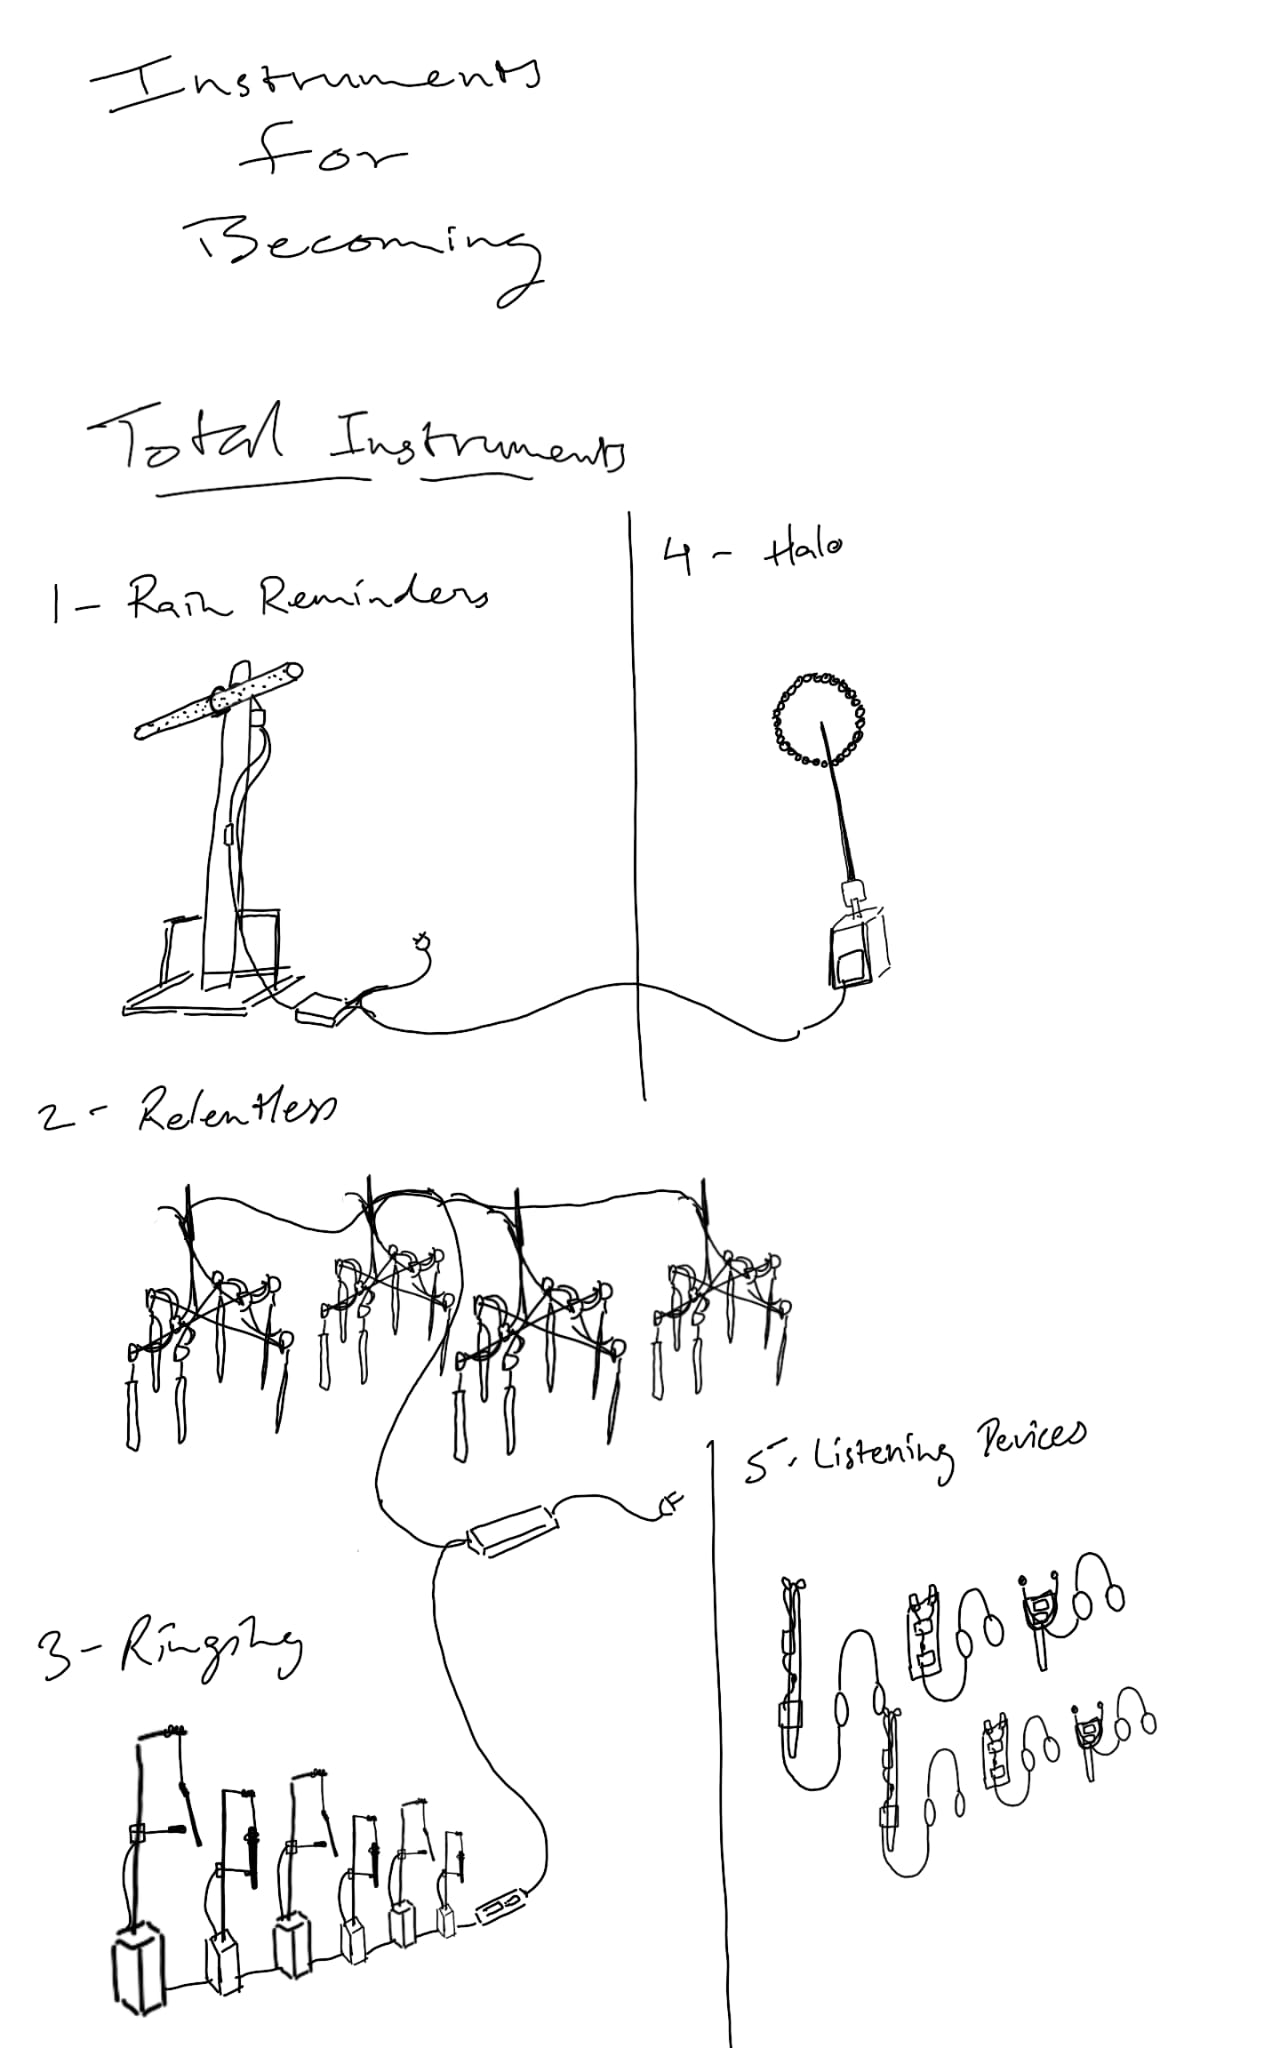 Instruments
for
Becoming
Total Instruments
1- Rain Reminders
4- Halo
2- Relentless
5- Listening Devices
3-